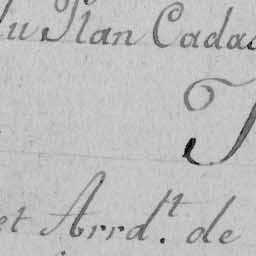 du Plan Cadas
T
et Arrd.t de